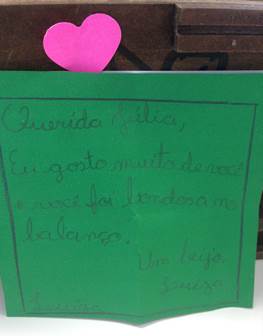 Querida Júlia,
Eu gosto muito de você
e você foi bondosa no
balanço.
Um beijo.
Luiza
Luiza